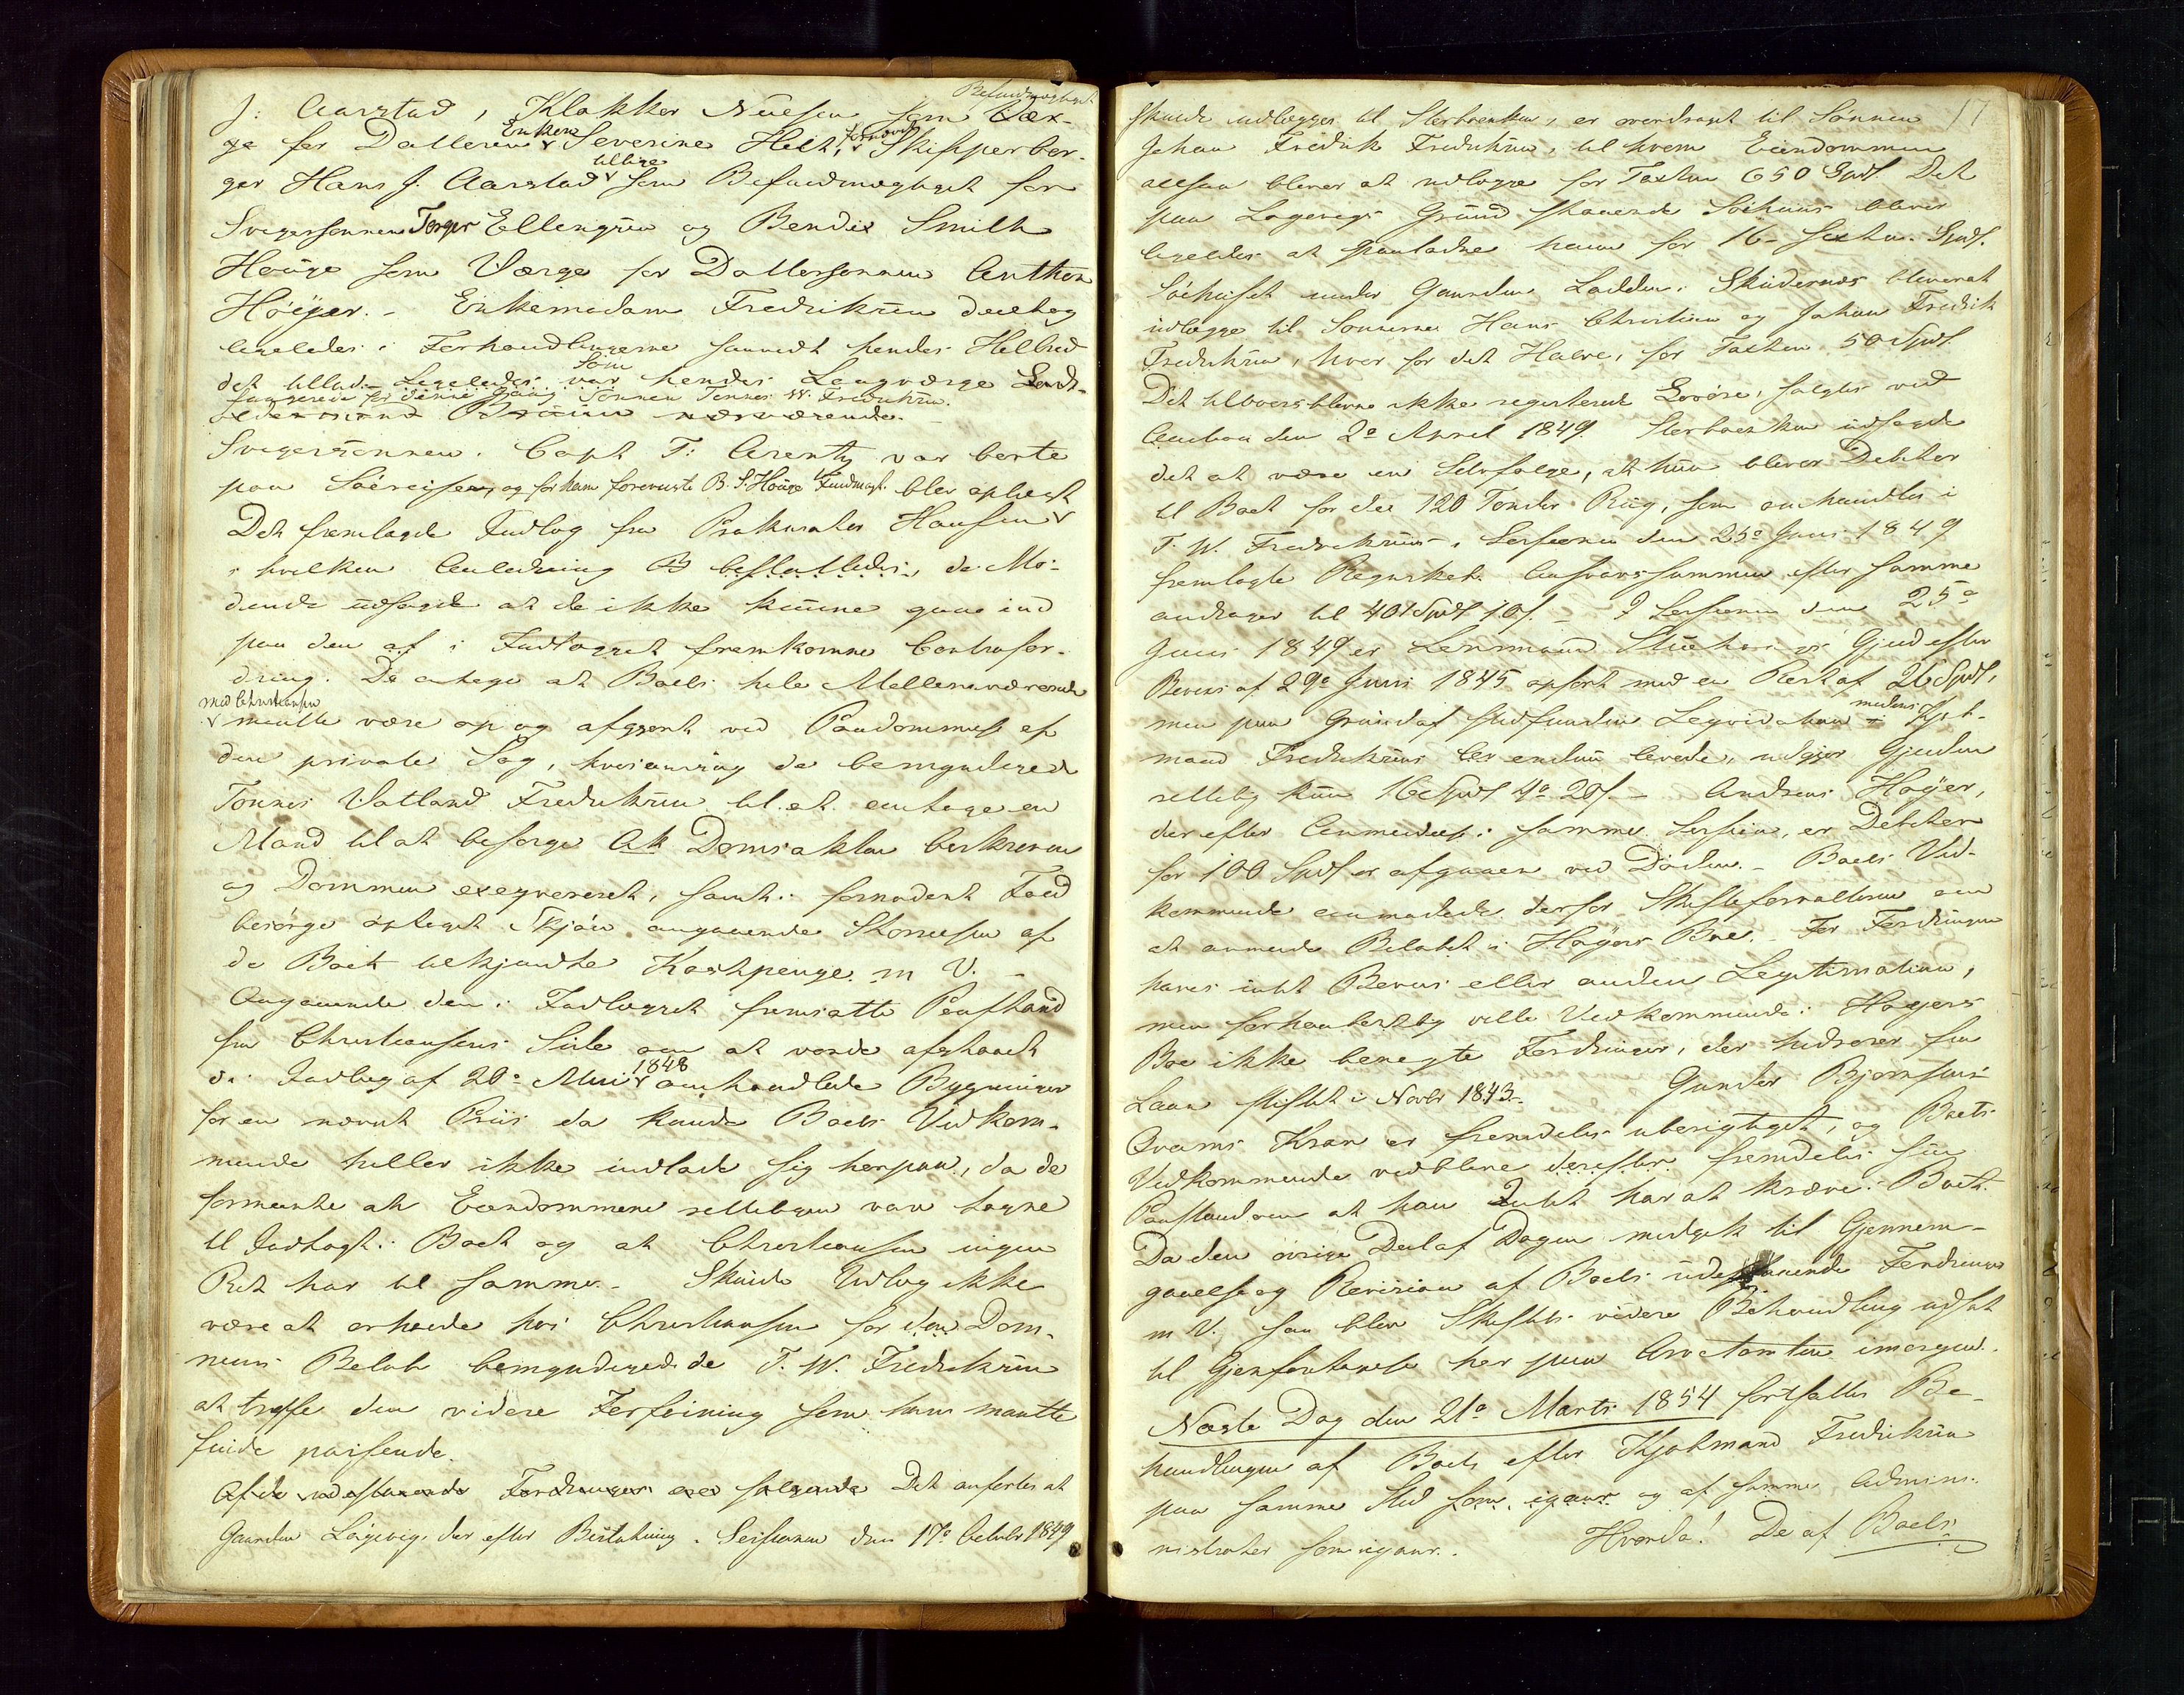 Befuldmægtiget
J: Aarstad, Klokker Nielsen som Vær-
ge for Datteren Enken Severine Helt, Skipperbor-
ger Hans J. Aarstad tillige som Befuldmægtiget for
Svigersønnen Torger Ellengsen og Bendix Smith
Houge som Værge for Dattersønnen Anthon
Höÿer. - Enkemadam Fredriksen deeltog
ligeledes i Forhandlingerne saavidt hendes Helbred
det tillod. Ligeledes Som var hendes Laugværge
fungerede for denne Gang Sønnen Tønnes W. Fredriksen.
nærværende.
Svigersønnen, Capt T: Arentz var borte
paa Söereise, og for ham foreviiste B. S. Houge Fuldmagt. blev oplæst
Det fremlagde Indlæg fra Prokurator Hansen
i hvilken Anledning de Mö-
dende udsagde at de ikke kunne gaae ind
paa den af i Indlægget fremkomne Contrafor-
dring. De antoge at Boets hele Mellemværende
med Christiansen
maatte være op og afgjort ved Paadømmelse af
den private Sag, hvorimod de bemyndigede
Tönnes Watland Fredriksen til at antage en
Mand til at besørge Domsakten beskreven
og Dommen exeqveret, samt i fornødent Fald
besørge optaget Skjön angaaende Störrelsen af
de Boet tilkjendte Kostpenge m V. -
Angaaende den i Indlægget fremsatte Paastand
fra Christiansens Side om at vorde afstaaet
de i Indlæg af 20de Mai 1848 omhandlede Bygninger
for en nævnt Priis da kunde Boets Vedkom-
mende heller ikke indlade sig herpaa, da de
formeente at Eiendommene rettelig var tagne
til Indtægt i Boet og at Christiansen ingen
Ret har til samme. - Skulde Udlæg ikke
være at erholde hos Christiansen for den Dom-
mens Belöb bemyndigede de T. W. Fredriksen
at træffe den videre Forföining som han maatte
finde passende.
Af de udestaaende Fordringer ere følgende Det anførtes at
Gaarden Lögevig, der efter Beslutning i Sessionen den 17de Octobr 1849
17
skulde udlægges til Sterboenken, er overdraget til Sönnen
Johan Fredrik Fredriksen, til hvem Eiendommen
altsaa bliver at udlægge for Taxten 650 Spd. Det
paa Lögevigs Grund staaende Söehuus bliver
ligeledes at overlades ham for 16 - sexten - Spd.
Söehuset under Gaarden Ladden i Skudesnes bliver at
udlægge til Sönnerne Hans Christian og Johan Fredrik
Fredriksen, hver for det Halve, for Taxten 50 Spd.
Det tiloversblevne ikke registrerede Lösöre, solgtes ved
Auction den 2de April 1849. Sterboenken udsagde
det at være en Selvfølge, at hun bliver Debitor
til Boet for de 120 Tønder Rug, som omhandles i
T. W. Fredriksens i Sessionen den 25de Juni 1849
fremlagte Regnskab. Ansvarssummen efter samme
andrager til 401 Spd 10 s. - I Sessionen den 25de
Juni 1849 er Lensmand Gjeld efter
Beviis af 29de Juni 1845 opfört med en Rest af 26 Spd,
men paa Grund af stedfunden Leqvidation medens Kjöb-
mand Fredriksen endnu levede, udgjør Gjelden
rettelig kun 16 Spd 4 20 s. - Andreas Höÿer,
der efter Anmeldelse i samme Session, er Debitor
for 100 Spd er afgaaen ved Döden. - Boets Ved-
kommende anmodede derfor Skifteforvalteren om
at anmelde Belöbet i Höÿers Boe. - For Fordringen
haves intet Beviis eller anden Legitimation,
men forhaabentlig ville Vedkommende i Höÿers
Boe ikke benegte Fordringen, der hidrører fra
Laan stiftet i Novbr 1843. Gunder Bjørnsens
Qvams Krav er fremdeles uberigtiget, og Boets
Vedkommende vedblive fremdeles sin
Paastand om at han Intet har at kræve i Boet.
Da den øvrige Deel af Dagen medgik til Gjennem-
gaaelse og Revision af Boets udestaaende Fordringer
m V. saa blev Skiftets videre Behandling udsat
til Gjenforetagelse her paa Arvetomten imorgen.
Næste Dag den 21de Marts 1854 fortsattes Be-
handlingen af Boet efter Kjøbmand Fredriksen
paa samme Sted som igaar og af samme Admini-
nistrator som igaar. Hvorda! De af Boets